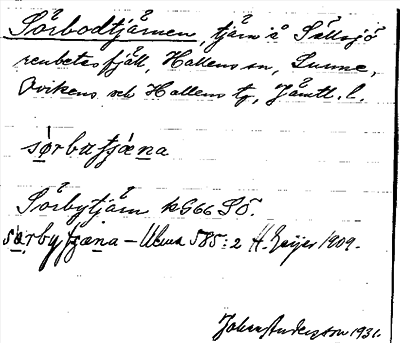 Sörbodtjärnen, tjärn å Sällsjö
renbetesfjäll, Hallens sn, Sunne,
Ovikens och Hallens tg, Jämtl. l.
sörbutjæna
Sörbytjärn kG66 SÖ.
sörbytjæna – Ulma 585:2 H. Geijer 1909.
Johan Anderson 1931.